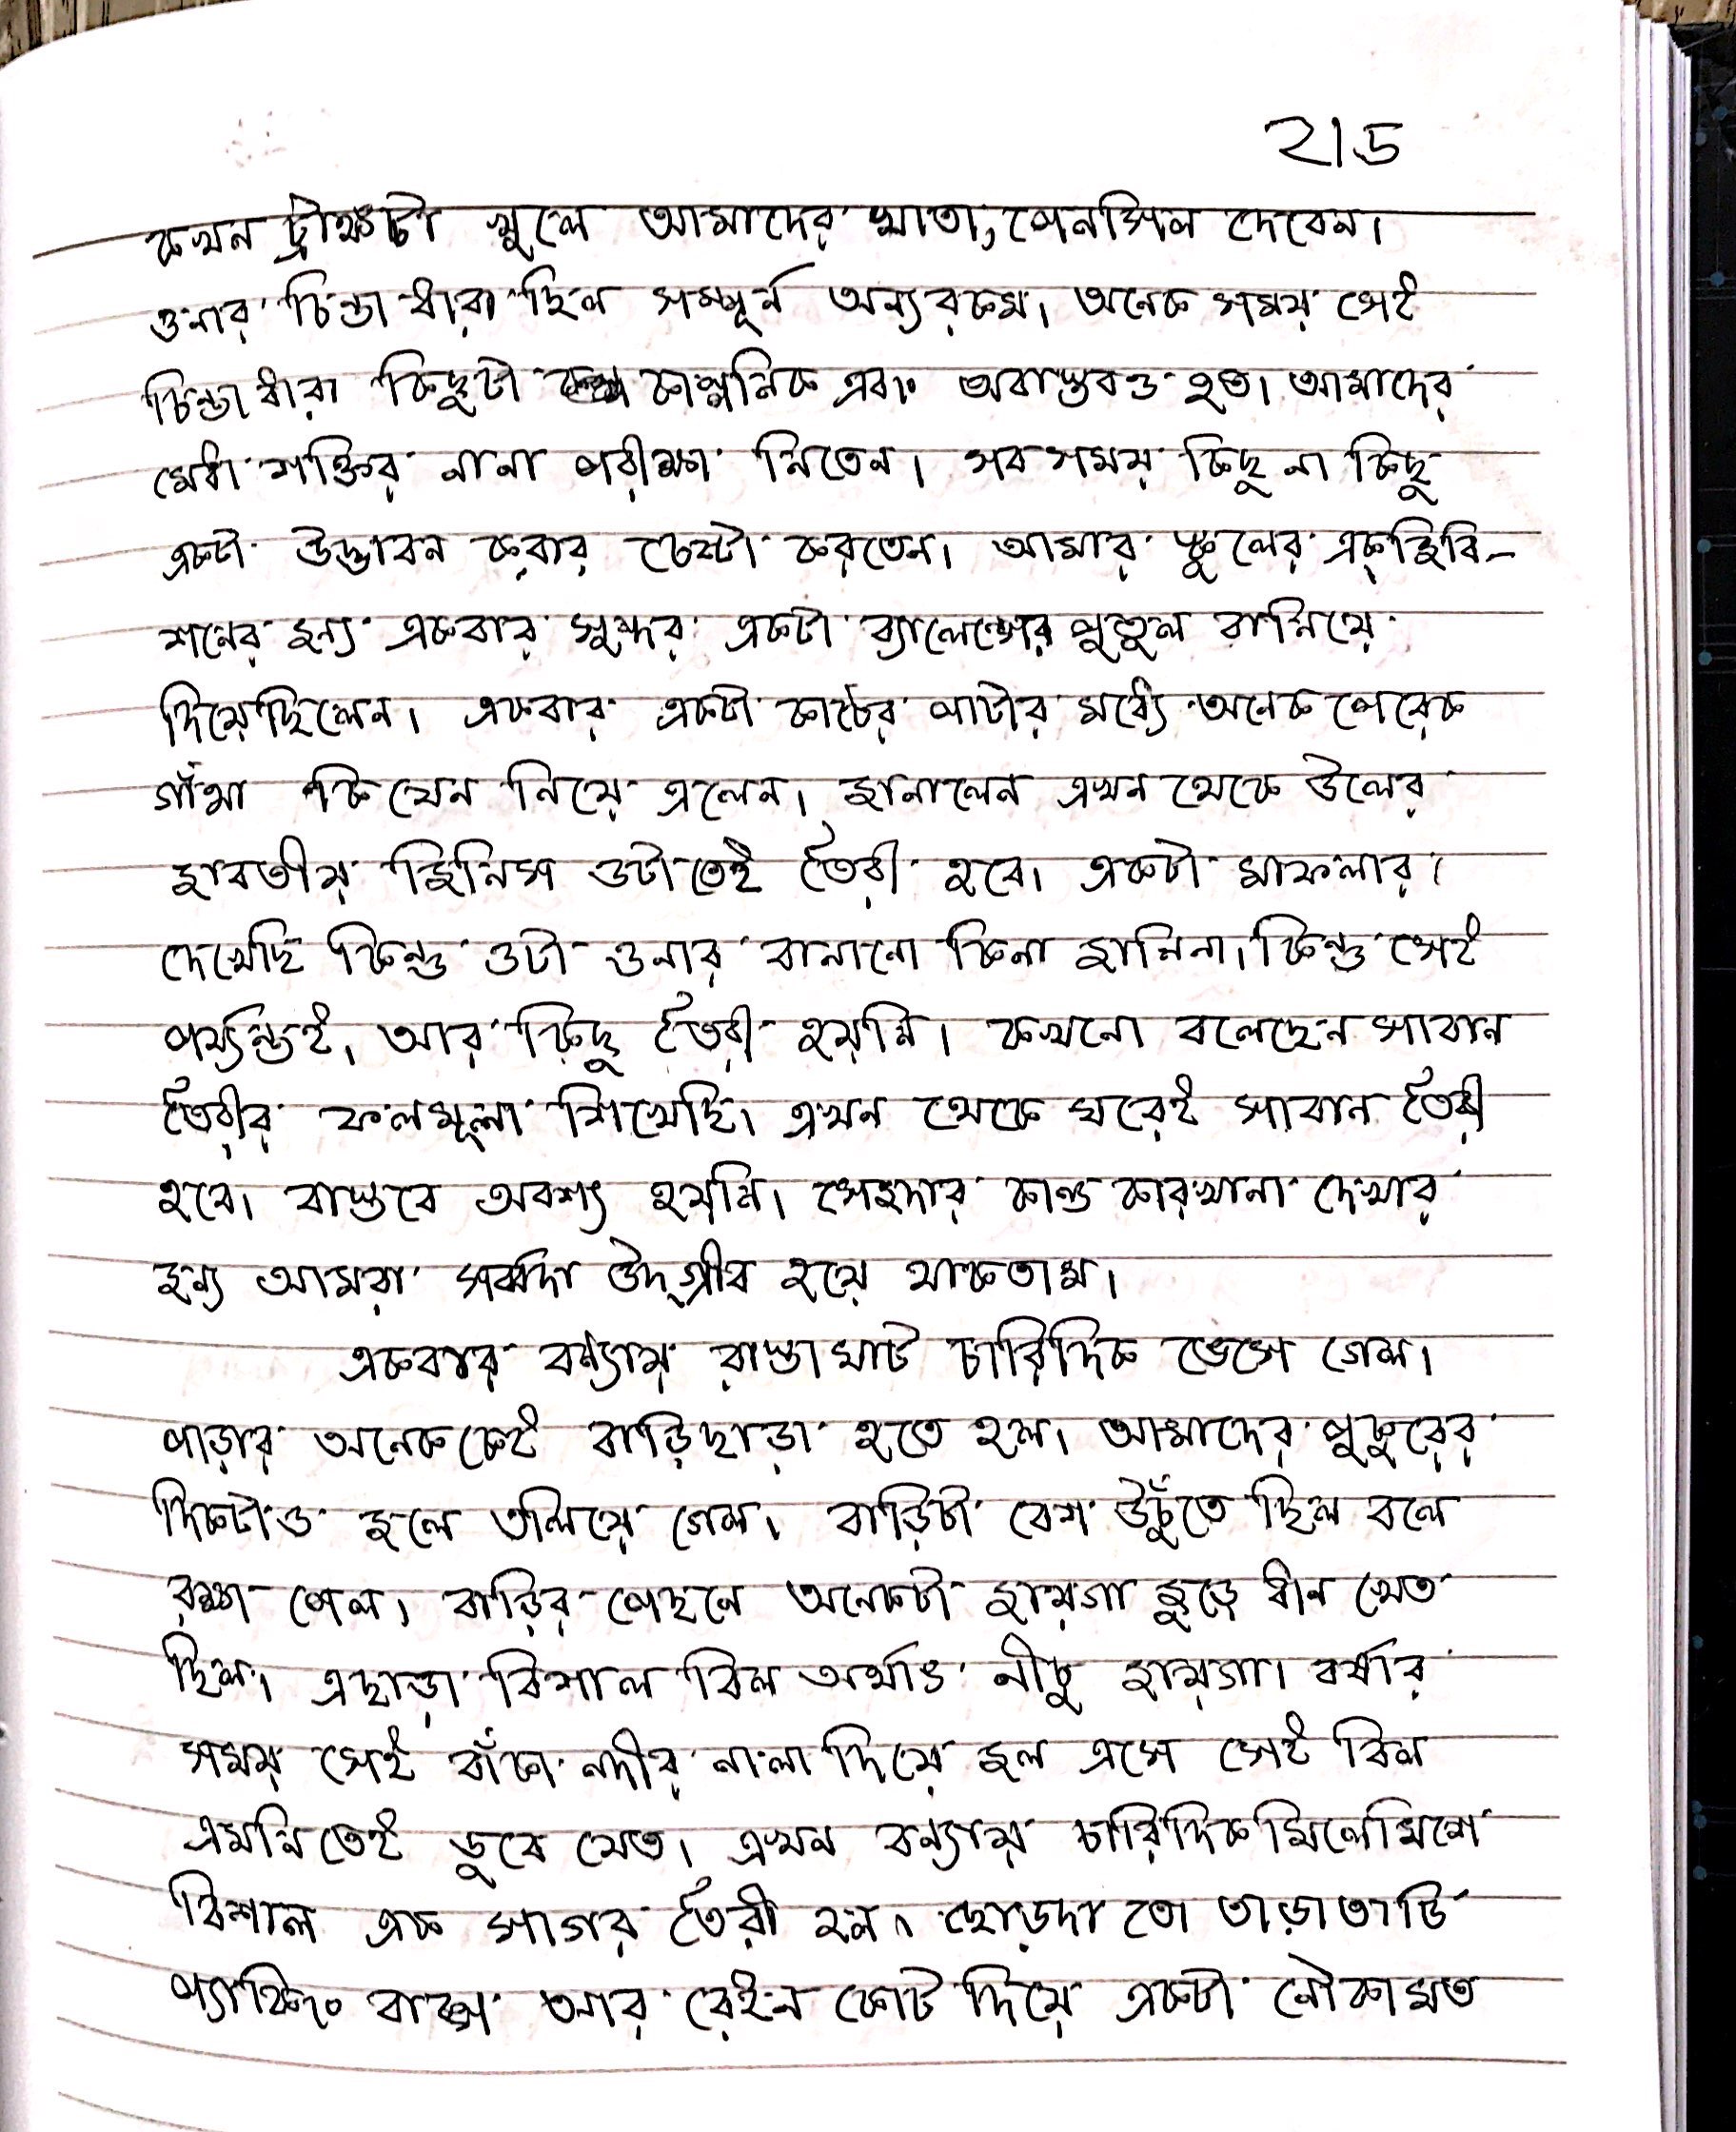 ২।ড
কখন ট্রাঙ্কটা খুলে আমাদের খাতা, পেনসিল দেবেন।
ওনার চিন্তা ধারা ছিল সম্পূর্ন অন্যরকম। অনেক সময় সেই
চিন্তা ধারা কিছুটা কাল্পনিক এবং অবাস্তবও হত। আমাদের
মেধা শক্তির নানা পরীক্ষা নিতেন। সব সময় কিছু না কিছু
একটা উদ্ভাবন করার চেষ্টা করতেন। আমার স্কুলের এক্জিবি-
শনের জন্য একবার সুন্দর একটা ব্যালেন্সের পুতুল বানিয়ে
দিয়েছিলেন। একবার একটা কাঠের পাটার মধ্যে অনেক পেরেক
গাঁথা কি যেন নিয়ে এলেন। জানালেন এখন থেকে উলের
যাবতীয় জিনিস ওটাতেই তৈরী হবে। একটা মাফলার
দেখেছি কিন্তু ওটা ওনার বানানো কিনা জানিনা। কিন্তু সেই
পর্য্যন্তই, আর কিছু তৈরী হয়নি। কখনো বলেছেন সাবান
তৈরীর ফলমূলা শিখেছি। এখন থেকে ঘরেই সাবান তৈরী
হবে। বাস্তবে অবশ্য হয়নি। সেজদার কান্ড কারখানা দেখার
জন্য আমরা সর্ব্বদা উদ্গ্রীব হয়ে থাকতাম।
একবার বন্যায় রাস্তা ঘাট চারিদিক ভেসে গেল।
পাড়ার অনেককেই বাড়িছাড়া হতে হল। আমাদের পুকুরের
দিকটাও জলে তলিয়ে গেল। বাড়িটা বেশ উঁচুতে ছিল বলে
রক্ষা পেল। বাড়ির পেছনে অনেকটা জায়গা জুড়ে ধান খেত
ছিল। এছাড়া বিশাল বিল অর্থাৎ নীচু জায়গা। বর্ষার
সময় সেই বাঁকা নদীর নালা দিয়ে জল এসে সেই বিল
এমনিতেই ডুবে যেত। এখন বন্যায় চারিদিক মিলেমিশে
বিশাল এক সাগর তৈরী হল। ছোড়দা তো তাড়াতাড়ি
প্যাকিং বাক্স আর রেইন কোট দিয়ে একটা নৌকা মত